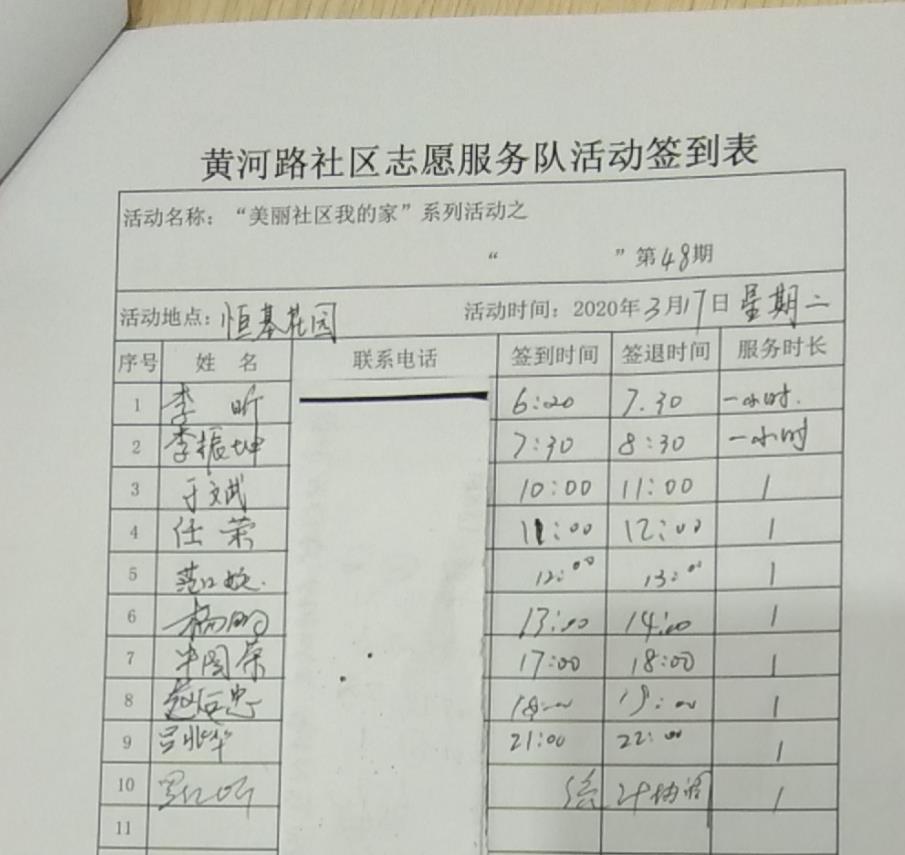 黄河路社区志愿服务队活动签到表
活动名称：“美丽社区我的家”系列活动之
“ ”第48期
活动地点：恒基花园 活动时间：2020年3月17日 星期二
序号 姓名 联系电话 签到时间 签退时间 服务时长
1 李昕 6:20 7.30 一小时.
2 李振坤 7:30 8:30 一小时
3 于文武 10:00 11:00 1
4 任荣 11:00 12:00 1
5 12:00 13:00 1
6 杨明 13:00 14:00 1
7 17:00 18:00 1
8 赵后忠 18:00 19:00 1
9 吕兆华 21:00 22:00 1
10 1
11